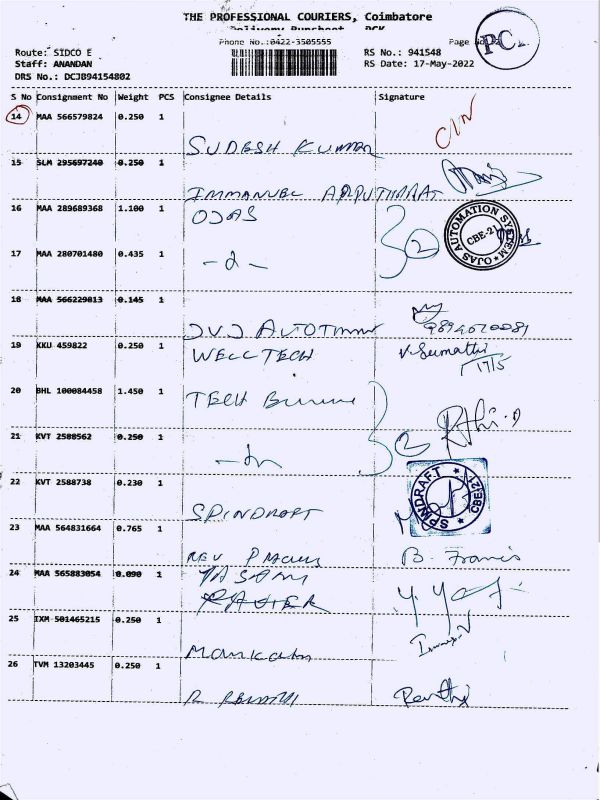 THE PROFESSIONAL COURIERS, Coimbatore
Delivery Runsheet - PCK
Phone No.:0422-3505555
Page No.
PC
Route: SIDCO E
Staff: ANANDAN
DRS No.: DCJ894154802
RS No.: 941548
RS Date: 17-May-2022
S No Consignment No Weight PCS Consignee Details Signature
14 MAA 566579824 0.250 1
SUDESH KUMAR
15 SLM 295697240 0.250 1
IMMANUEL ARPUTHARAJ
16 MAA 289689368 1.100 1 OJAS
2
OJAS AUTOMATION SYSTEM
CBE-21
17 MAA 280701480 0.435 1
18 MAA 566229813 0.145 1
JVJ
19 KKU 459822 0.250 1 WELLTECH V.Sumathi
17/5
20 BHL 100084458 1.450 1 TECH
21 KVT 2588562 0.250 1
2
22 KVT 2588738 0.230 1
SPINDRAFT
SPINDRAFT CBE-21
23 MAA 564831664 0.765 1
B. Francis
24 MAA 565883054 0.090 1
25 IXM 501465215 0.250 1
26 TVM 13203445 0.250 1
R REVATHI Revathi